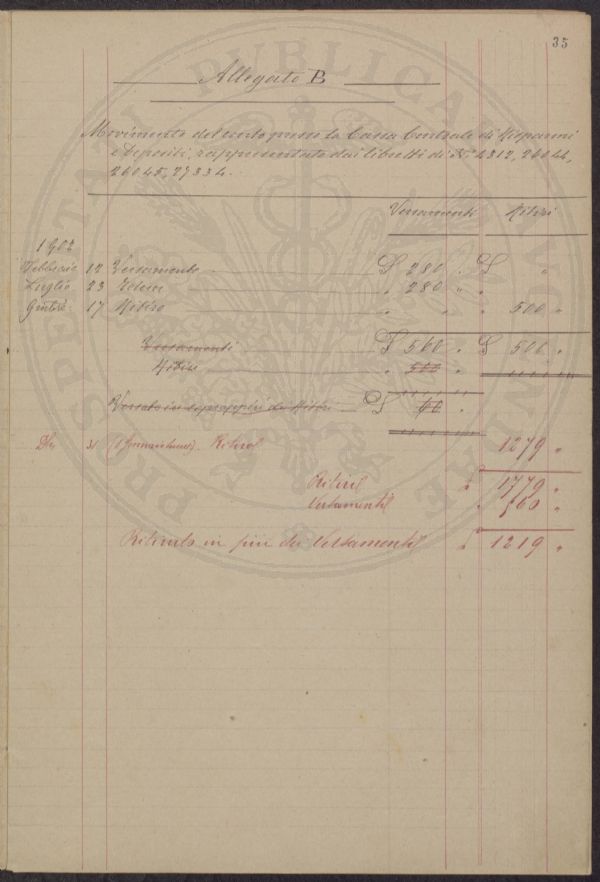 35
Allegato B
Movimento del conto presso la Cassa Centrale di Risparmi
e Depositi, rappresentato dai libretti di N.° 4312, 26044,
26045, 27334.
Versamenti Ritiri
1902
Febbraio 12 Versamento £ 280 . £ "
Luglio 23 Idem " 280 " "
17 Ritiro " " " 500 "
Versamenti £ 560 " £ 500 "
Ritiri " 500 "
Versato in soprappiù dei Ritiri £ 60 "
Dbr 31 Ritiri 1279 "
Ritiri £ 1779 "
Versamenti " 560 "
Ritirato in più dei Versamenti £ 1219 "
PROSPERITATI PUBLICAE AUG